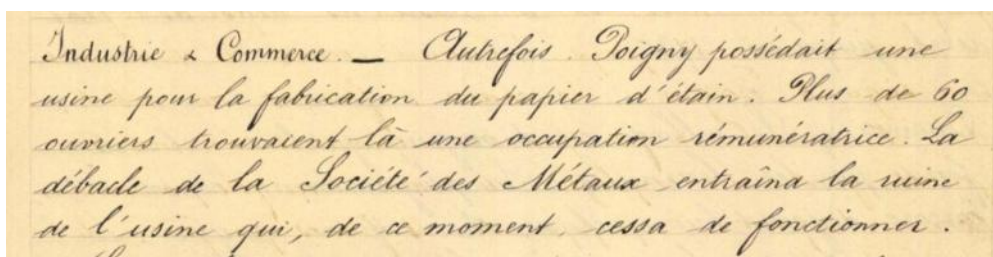 Industrie & Commerce. — Autrefois Poigny possédait une
usine pour la fabrication du papier d'étain. Plus de 60
ouvriers trouvaient là une occupation rémunératrice. La
débacle de la Société des Métaux entraîna la ruine
de l'usine qui, de ce moment, cessa de fonctionner.